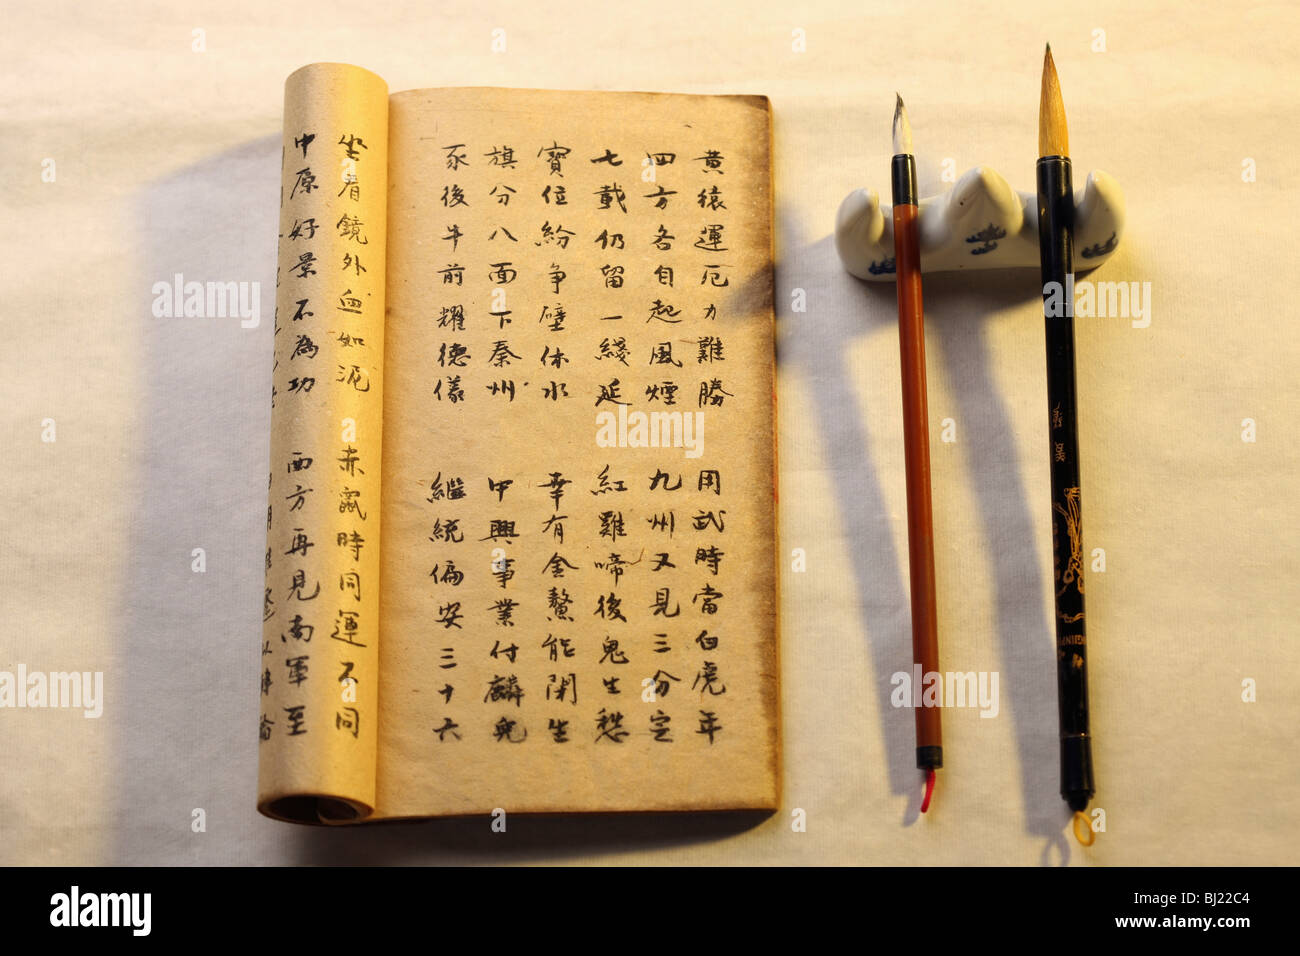 黄猿運厄力難勝 用武時當白虎年
四方各自起風煙 九州又見三分定
七載仍留一綫延 紅雞啼後鬼生愁
寶位紛争壁休水 幸有金鰲能閑生
旗分八面下秦州 中興事業付麟兒
豕後牛前耀德儀 繼統偏安三十六
坐看鏡外血如泥 赤鼠時同運不同
中原好景不為功 西方再見南軍至
alamy
Image ID: BJ22C4
www.alamy.com